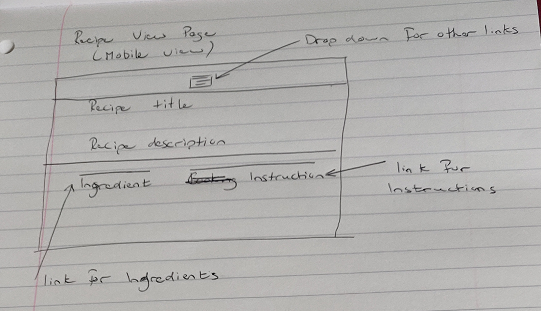 Recipe View Page
(Mobile view)
Drop down for other links
Recipe title
Recipe description
Ingredient
Instruction
link for
Instructions
link for Ingredients